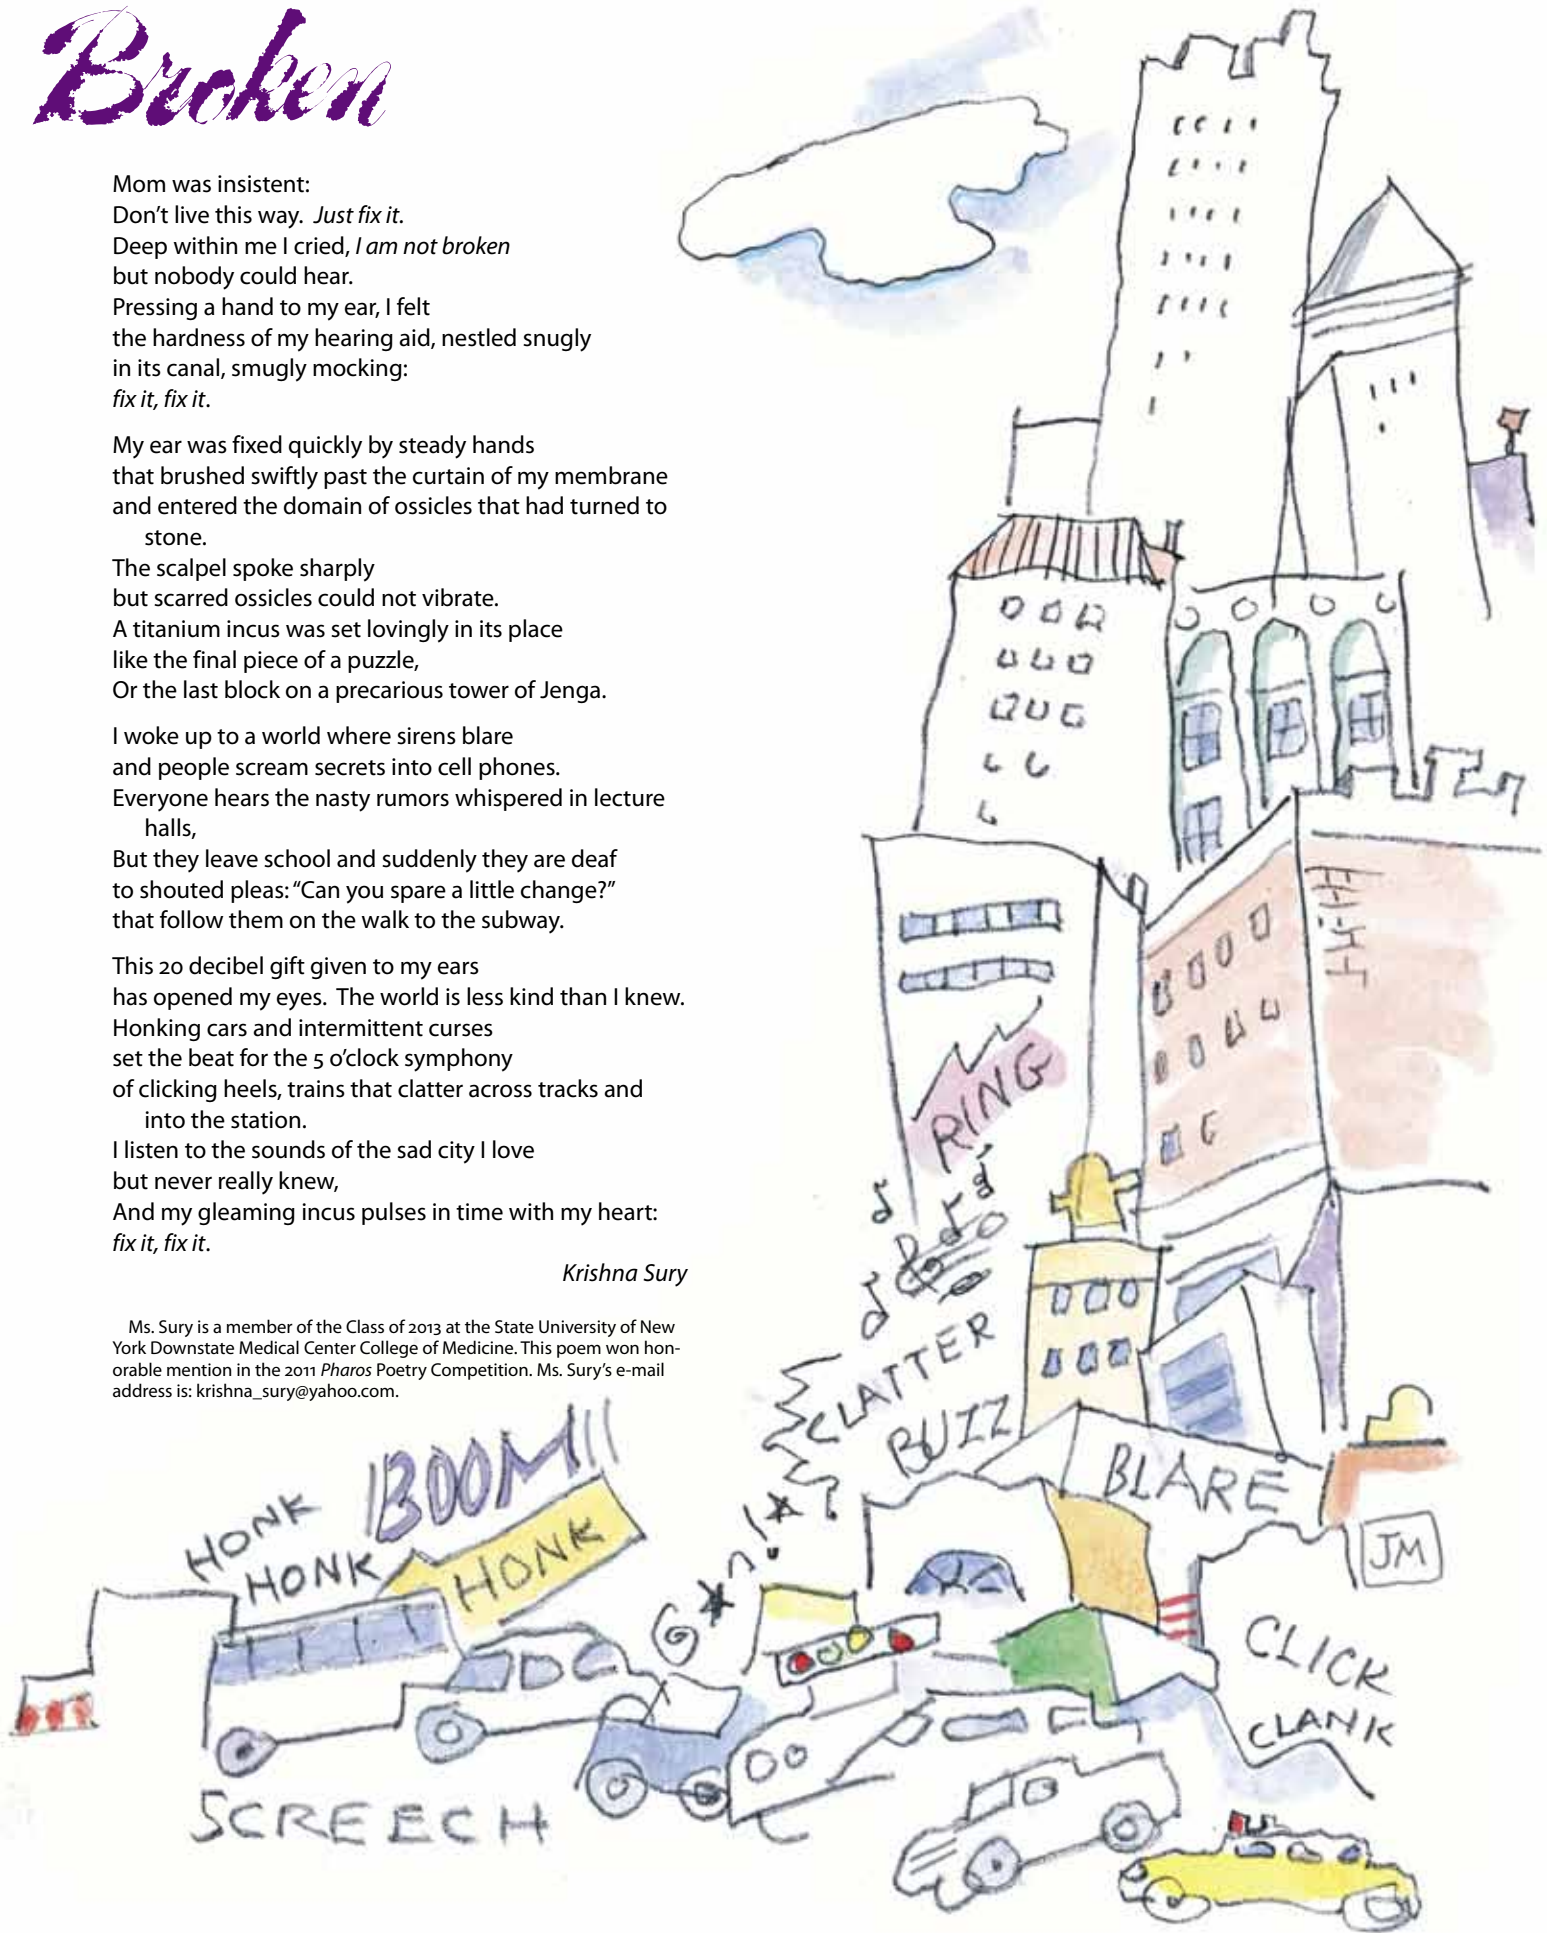 Broken
Mom was insistent:
Don’t live this way.  Just fix it.
Deep within me I cried, I am not broken
but nobody could hear.
Pressing a hand to my ear, I felt
the hardness of my hearing aid, nestled snugly
in its canal, smugly mocking:
fix it, fix it.
My ear was fixed quickly by steady hands
that brushed swiftly past the curtain of my membrane
and entered the domain of ossicles that had turned to
stone.
The scalpel spoke sharply
but scarred ossicles could not vibrate.
A titanium incus was set lovingly in its place
like the final piece of a puzzle,
Or the last block on a precarious tower of Jenga.
I woke up to a world where sirens blare
and people scream secrets into cell phones.
Everyone hears the nasty rumors whispered in lecture
halls,
But they leave school and suddenly they are deaf
to shouted pleas: “Can you spare a little change?”
that follow them on the walk to the subway.
This 20 decibel gift given to my ears
has opened my eyes.  The world is less kind than I knew.
Honking cars and intermittent curses
set the beat for the 5 o’clock symphony
of clicking heels, trains that clatter across tracks and
into the station.
I listen to the sounds of the sad city I love
but never really knew,
And my gleaming incus pulses in time with my heart:
fix it, fix it.
Krishna Sury
Ms. Sury is a member of the Class of 2013 at the State University of New
York Downstate Medical Center College of Medicine. This poem won hon-
orable mention in the 2011 Pharos Poetry Competition. Ms. Sury’s e-mail
address is: krishna_sury@yahoo.com.
RING
CLATTER
BUZZ
BLARE
BOOM!!
HONK
HONK
HONK
JM
CLICK
CLANK
SCREECH